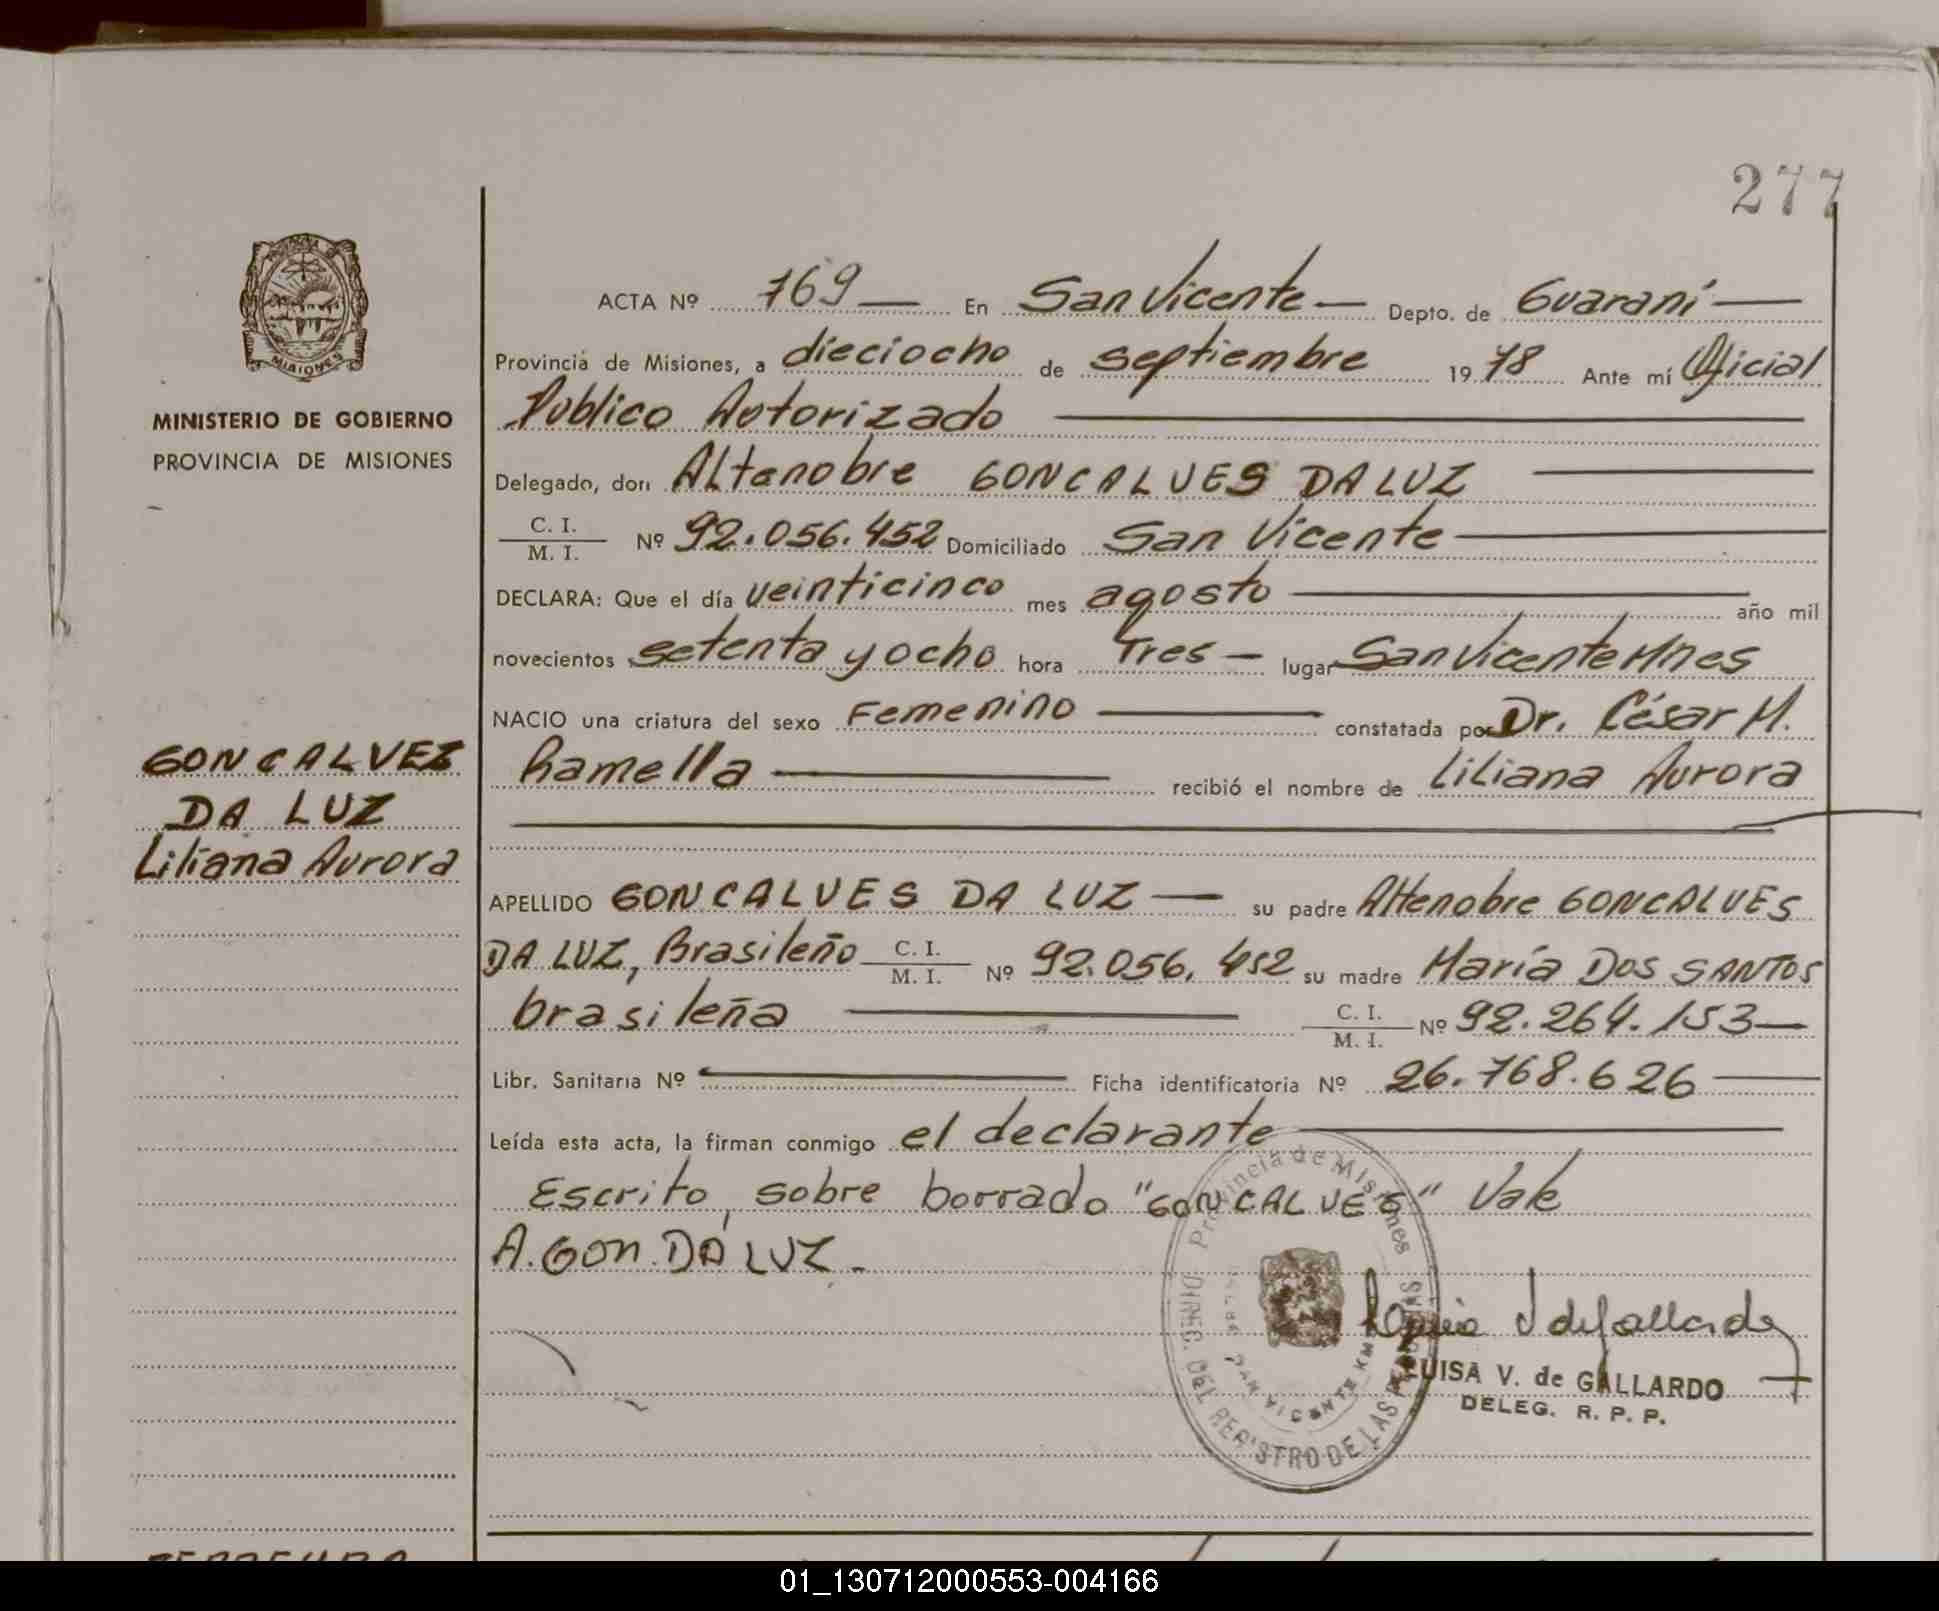 277
MISIONES
MINISTERIO DE GOBIERNO
PROVINCIA DE MISIONES
ACTA Nº 769 En San Vicente Depto. de Guaraní
Provincia de Misiones, a dieciocho de septiembre 19 78 Ante mí Oficial
Publico Autorizado
Delegado, don Altenobre GONCALVES DA LUZ
C. I.
M. I. Nº 92.056.452 Domiciliado San Vicente
DECLARA: Que el día veinticinco mes agosto año mil
novecientos setenta y ocho hora Tres lugar San Vicente Mnes
NACIO una criatura del sexo Femenino constatada por Dr. César M.
Ramella recibió el nombre de Liliana Aurora
GONCALVEZ
DA LUZ
Liliana Aurora
APELLIDO GONCALVES DA LUZ su padre Altenobre GONCALVES
DA LUZ, Brasileño C. I. M. I. Nº 92.056.452 su madre María DOS SANTOS
brasileña C. I. M. I. Nº 92.264.153
Libr. Sanitaria Nº Ficha identificatoria Nº 26.768.626
Leída esta acta, la firman conmigo el declarante
Escrito sobre borrado "GONCALVES" Vale
A. GON. DA LUZ.
Provincia de Misiones
DIREC. DEL REGISTRO DE LAS PERSONAS
SAN VICENTE KM
LUISA V. de GALLARDO
DELEG. R. P. P.
01_130712000553-004166